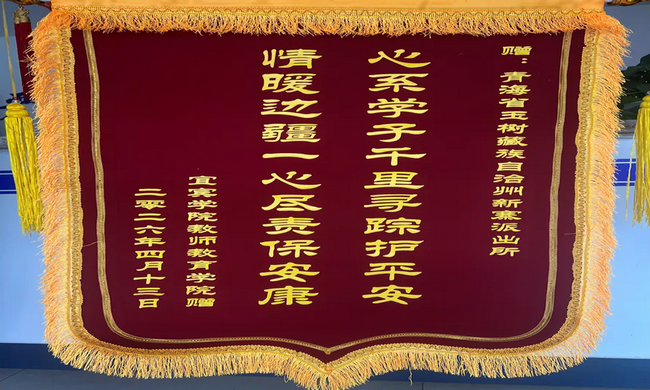 赠：青海省玉树藏族自治州新寨派出所
心系学子千里寻踪护平安
情暖边疆一心尽责保安康
宜宾学院教师教育学院赠
二零二六年四月十三日